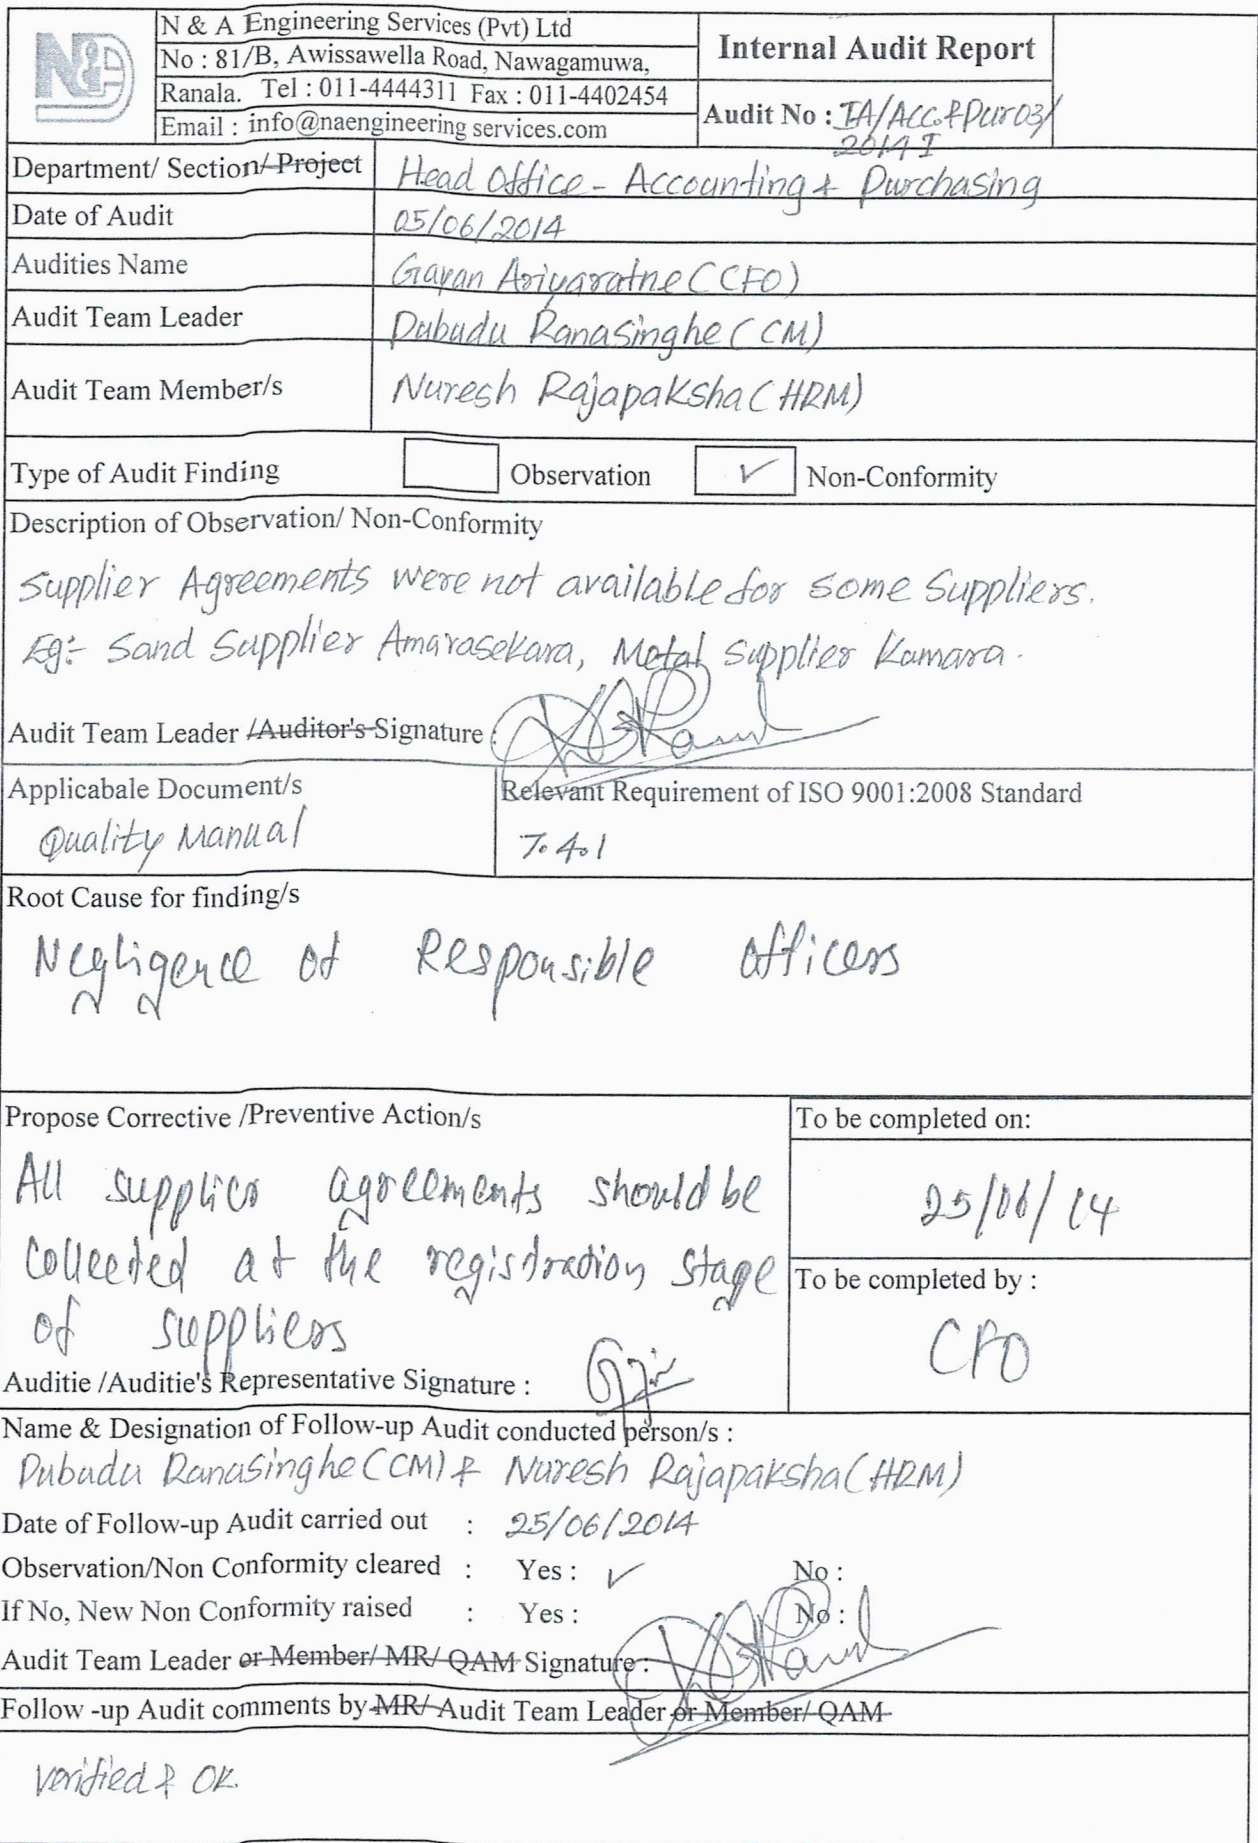 N&A
N & A Engineering Services (Pvt) Ltd
No : 81/B, Awissawella Road, Nawagamuwa,
Ranala. Tel : 011-4444311 Fax : 011-4402454
Email : info@naengineering services.com
Internal Audit Report
Audit No : IA/ACC&Pur03/
2014 I
Department/ Section/ Project Head Office - Accounting & Purchasing
Date of Audit 05/06/2014
Audities Name Gayan Ariyaratne (CFO)
Audit Team Leader Dubudu Ranasinghe (CM)
Audit Team Member/s Nuresh Rajapaksha (HRM)
Type of Audit Finding Observation ✓ Non-Conformity
Description of Observation/ Non-Conformity
Supplier Agreements were not available for some Suppliers.
Eg:- Sand Supplier Amarasekara, Metal Supplier Kamara.
Audit Team Leader /Auditor's Signature :
Applicabale Document/s Relevant Requirement of ISO 9001:2008 Standard
Quality Manual 7.4.1
Root Cause for finding/s
Negligence of Responsible officers
Propose Corrective /Preventive Action/s To be completed on:
All supplier agreements should be
collected at the registration stage
of suppliers
25/06/14
To be completed by :
CFO
Auditie /Auditie's Representative Signature :
Name & Designation of Follow-up Audit conducted person/s :
Dubudu Ranasinghe (CM) & Nuresh Rajapaksha (HRM)
Date of Follow-up Audit carried out : 25/06/2014
Observation/Non Conformity cleared : Yes : ✓ No :
If No, New Non Conformity raised : Yes : No :
Audit Team Leader or Member/ MR/ QAM Signature :
Follow -up Audit comments by MR/ Audit Team Leader or Member/ QAM
Verified & OK.